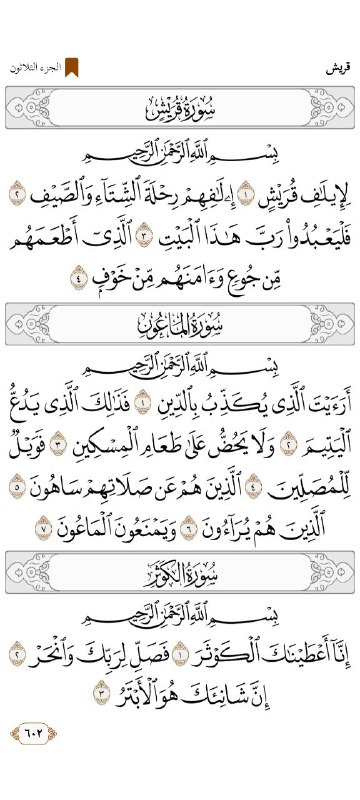 قريش
الجزء الثلاثون
سُورَةُ قُرَيْشٍ
بِسْمِ ٱللَّهِ ٱلرَّحْمَٰنِ ٱلرَّحِيمِ
لِإِيلَٰفِ قُرَيْشٍ ١ إِۦلَٰفِهِمْ رِحْلَةَ ٱلشِّتَآءِ وَٱلصَّيْفِ ٢
فَلْيَعْبُدُوا۟ رَبَّ هَٰذَا ٱلْبَيْتِ ٣ ٱلَّذِىٓ أَطْعَمَهُم
مِّن جُوعٍ وَءَامَنَهُم مِّنْ خَوْفٍۭ ٤
سُورَةُ المَاعُونِ
بِسْمِ ٱللَّهِ ٱلرَّحْمَٰنِ ٱلرَّحِيمِ
أَرَءَيْتَ ٱلَّذِى يُكَذِّبُ بِٱلدِّينِ ١ فَذَٰلِكَ ٱلَّذِى يَدُعُّ
ٱلْيَتِيمَ ٢ وَلَا يَحُضُّ عَلَىٰ طَعَامِ ٱلْمِسْكِينِ ٣ فَوَيْلٌ
لِّلْمُصَلِّينَ ٤ ٱلَّذِينَ هُمْ عَن صَلَاتِهِمْ سَاهُونَ ٥
ٱلَّذِينَ هُمْ يُرَآءُونَ ٦ وَيَمْنَعُونَ ٱلْمَاعُونَ ٧
سُورَةُ الكَوْثَرِ
بِسْمِ ٱللَّهِ ٱلرَّحْمَٰنِ ٱلرَّحِيمِ
إِنَّآ أَعْطَيْنَٰكَ ٱلْكَوْثَرَ ١ فَصَلِّ لِرَبِّكَ وَٱنْحَرْ ٢
إِنَّ شَانِئَكَ هُوَ ٱلْأَبْتَرُ ٣
٦٠٢